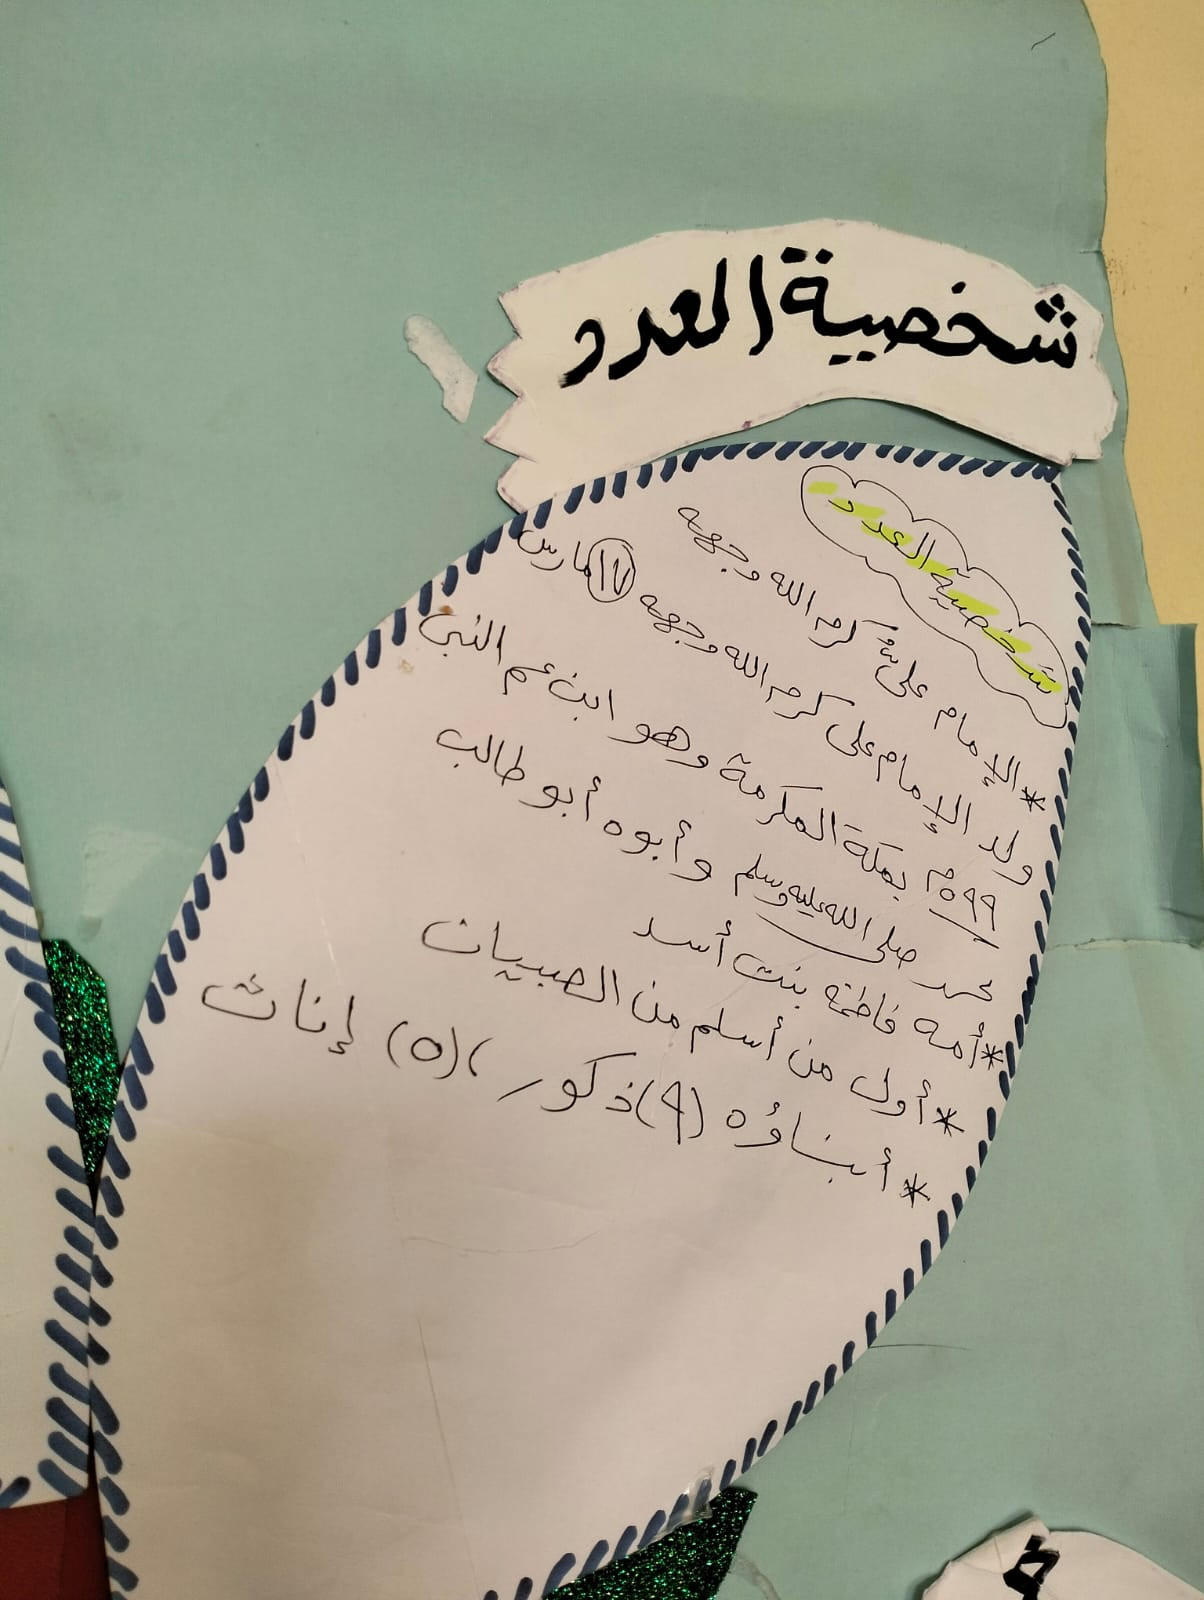 شخصية العدد
شخصية العدد
* الإمام علىّ كرم الله وجهه
ولد الإمام على كرم الله وجهه ١٧ مارس
٥٩٩م بمكة المكرمة وهو ابن عم النبى
محمد صلى الله عليه وسلم وأبوه أبو طالب
* أمه فاطمة بنت أسد
* أول من أسلم من الصبيان
* أبناؤه (٩) ذكور ، (٥) إناث